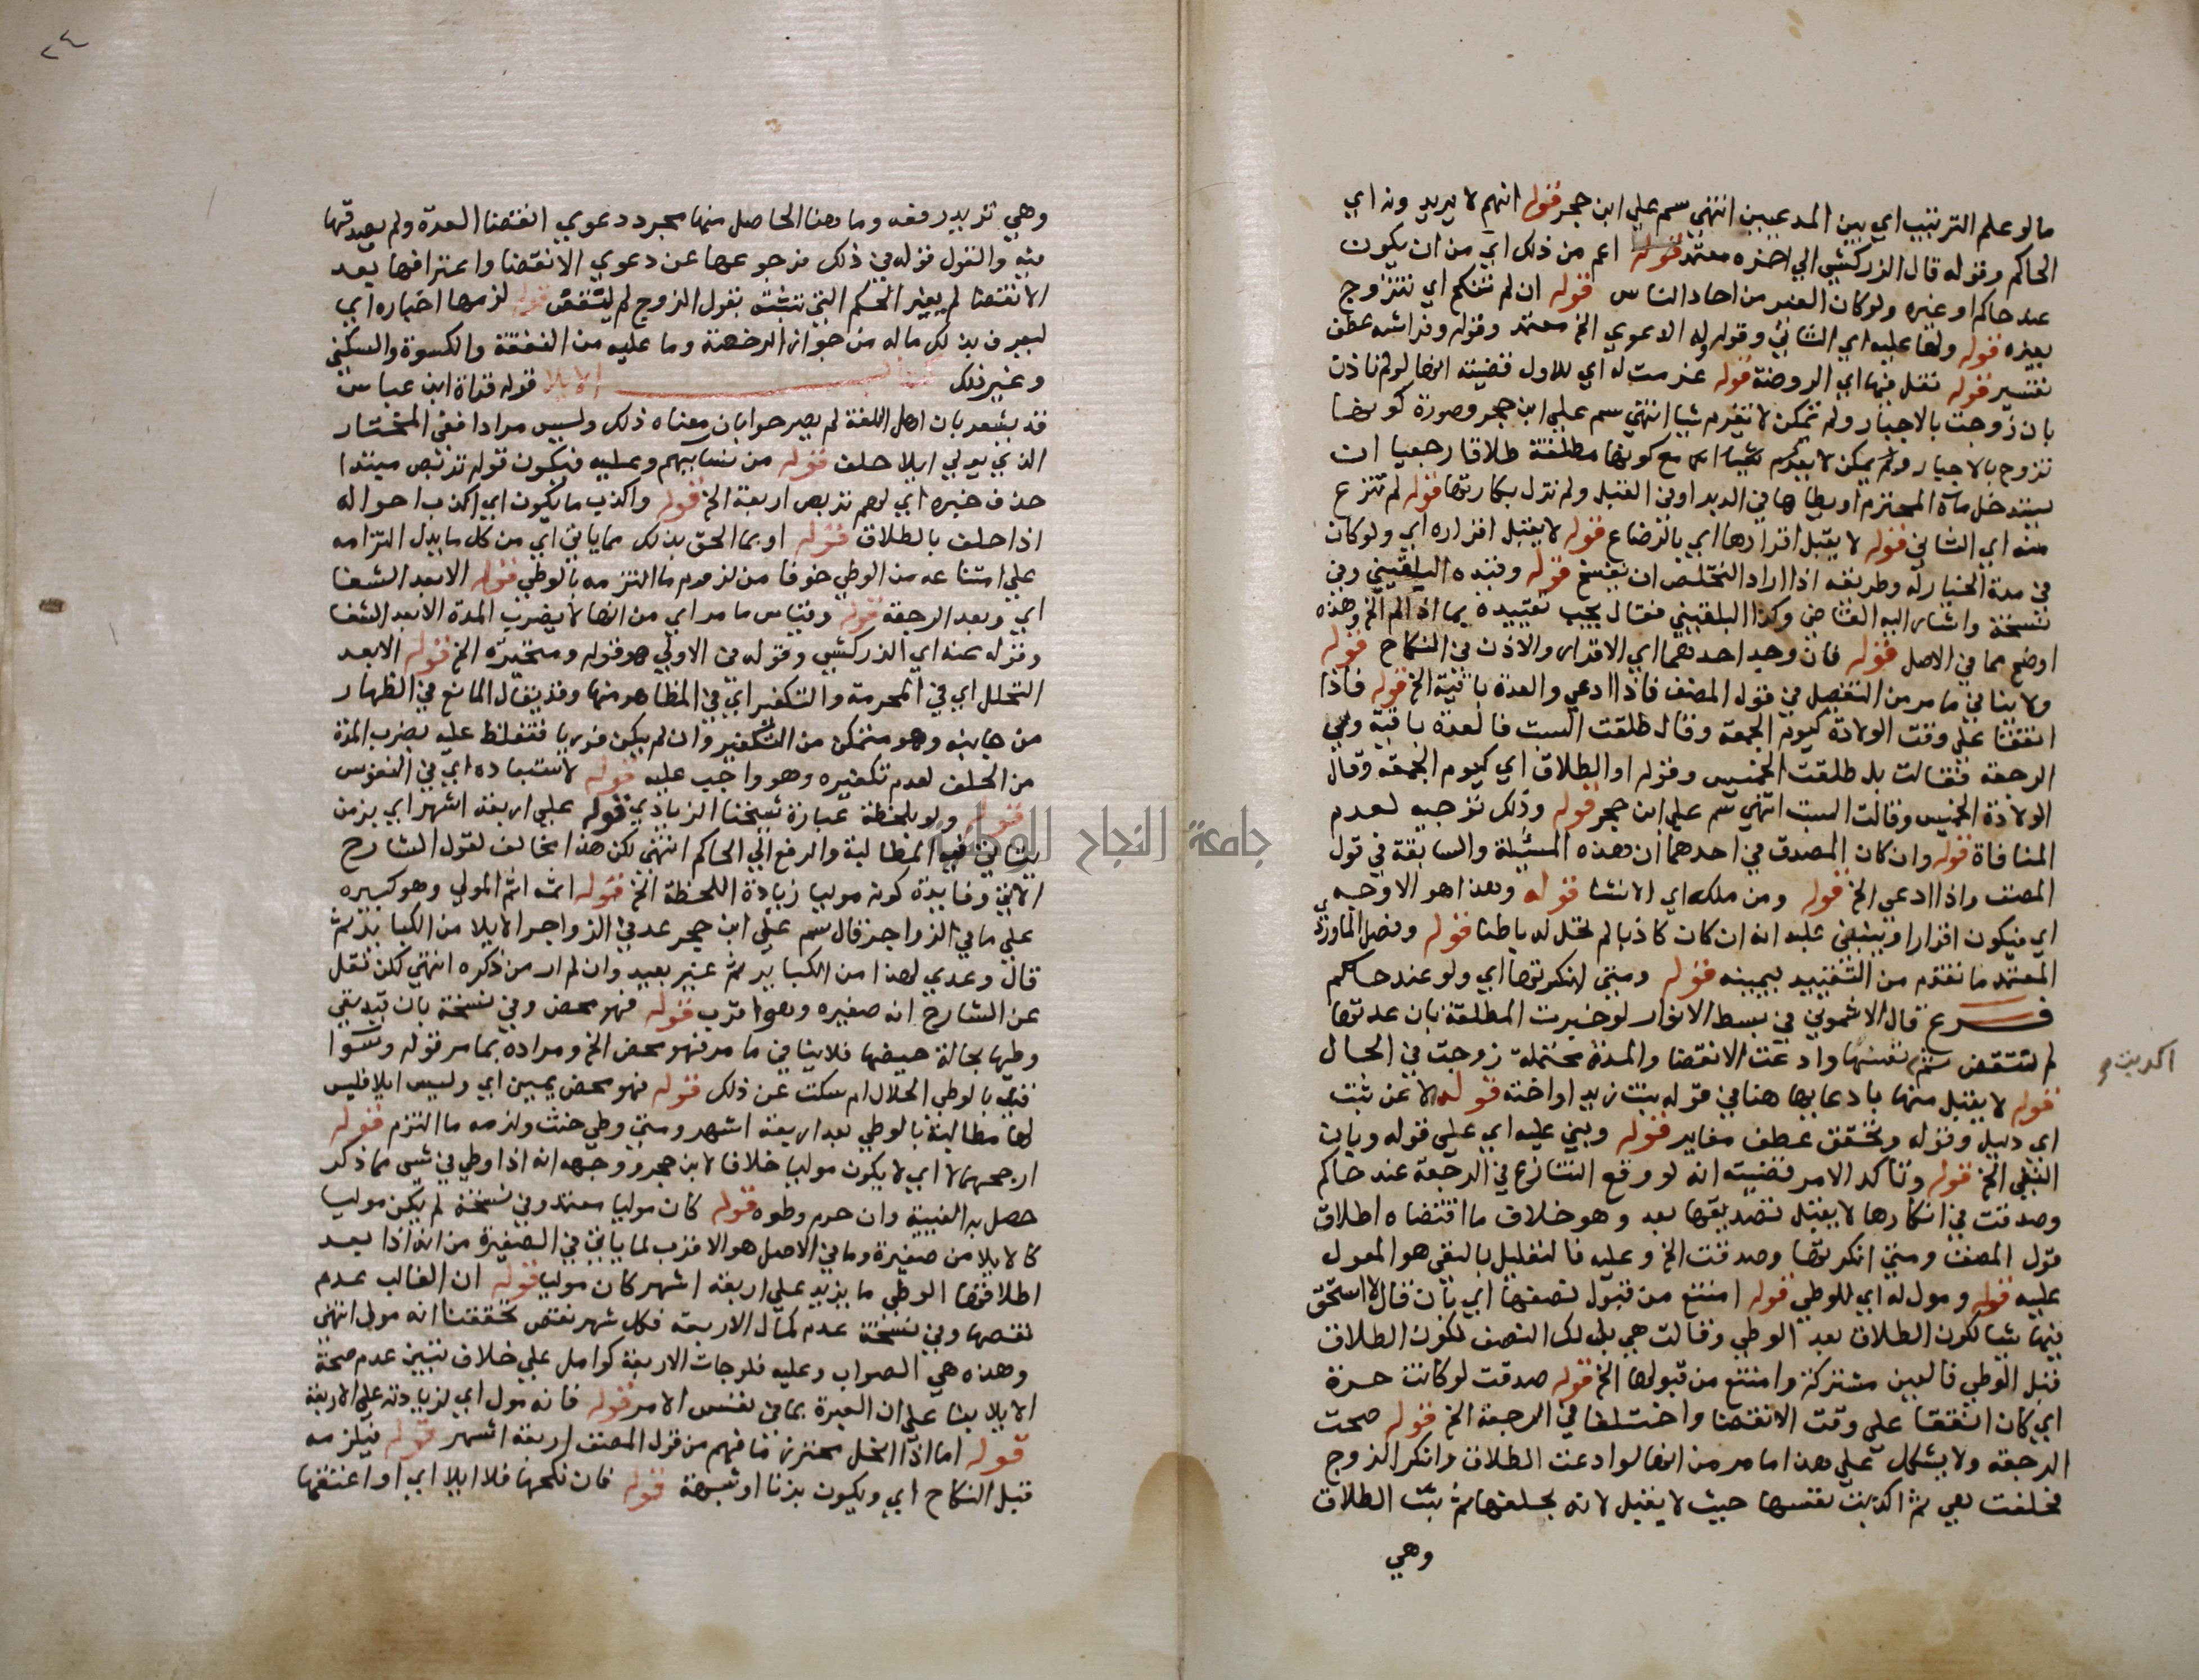 مالو علم الترتيب اي بين المدعيين انتهى سم علي ابن حجر قوله انهم لا يريدونه اي
الحاكم وقوله قال الزركشي الي اخره معتمد قوله اعم من ذلك اي من ان يكون
عند حاكم او غيره ولو كان الغير من احاد الناس قوله ان لم تنكح اي تتزوج
بغيره قوله ولها عليه اي الثاني وقوله وله الدعوي الخ معتمد وقوله وفراشه عطف
تفسير قوله نقل فيها اي الروضة قوله غرمت له اي للاول قضيته انها لو لم تاذن
بان زوجت بالاجبار ولم تمكن لا تغرم شيا انتهى سم علي ابن حجر وصورة كونها
تزوج بالاجبار ولم يمكن لا يغرم شيا مع كونها مطلقة طلاقا رجعيا ان
يستدخل ماه المحترم او يطاها في الدبر او في القبل ولم تزل بكارتها قوله لم تنزع
منه اي الثاني قوله لا يقبل اقرارها اي بالرضاع قوله لا يقبل اقراره اي ولو كان
في مدة الخيار له وطريقه اذا اراد التخلص ان يفسخ قوله وقيده البلقيني وفي
نسخة واشار اليه القاضي وكذا البلقيني فقال يجب تقييده بما اذا لم الخ وهذه
اوضح مما في الاصل قوله فان وجد احدهما اي الاقرار والاذن في النكاح قوله
ولا ينافي ما مر من التفصيل في قول المصنف فاذا ادعي والعدة باقية الخ قوله فاذا
اتفقتا علي وقت الولادة كيوم الجمعة وقال طلقت السبت فالعدة باقية ولي
الرجعة فقالت بل طلقت الخميس وقوله او الطلاق اي كيوم الجمعة وقال
الولادة الخميس وقالت السبت انتهى سم علي ابن حجر قوله وذلك توجيه لعدم
المنافاة قوله وان كان المصدق في احدهما ان هذه المسئلة والسابقة في قول
المصنف واذا ادعي الخ قوله ومن ملكه اي الانشا قوله وهذا هو الاوجه
اي فيكون اقرارا وينبغي عليه انه ان كان كاذبا لم تحل له باطنا قوله وفصل الماوردي
المعتمد ما تقدم من التقييد بيمينه قوله ومتي انكرتها اي ولو عند حاكم
فرع قال الاشموني في بسط الانوار لو خبرت المطلقة بان عدتها
لم تنقض ثم نفسها وادعت الانقضا والمدة محتملة زوجت في الحال
اكذبت صح
قوله لا يقبل منها بادعايها هنا في قوله بنت زيد او اخته قوله الا عن ثبت
اي دليل وقوله وتحقق عطف مغاير قوله وبني عليه اي علي قوله وبان
النفي الخ قوله وتاكد الامر قضيته انه لو وقع التنازع في الرجعة عند حاكم
وصدقت في انكارها لا يقبل تصديقها بعد وهو خلاف ما اقتضاه اطلاق
قول المصنف ومتي انكرتها وصدقت الخ وعليه فالتعليل بالنفي هو المعول
عليه قوله ومول له اي للوطي قوله امتنع من قبول نصفها اي بان قال لا استحق
فيها شيا لكون الطلاق بعد الوطي وقالت هي بل لك النصف لكون الطلاق
قبل الوطي فالعين مشتركة وامتنع من قبولها الخ قوله صدقت لو كانت حرة
اي كان اتفقا علي وقت الانقضا واختلفا في الرجعة الخ قوله صحت
الرجعة ولا يشكل علي هذا ما مر من انها لو ادعت الطلاق وانكر الزوج
فحلفت هي ثم اكذبت نفسها حيث لا يقبل لانه بحلفها ثم ثبت الطلاق
وهي
٢٤
وهي تريد رفعه وما هنا الحاصل منها مجرد دعوي انقضا العدة ولم يصدقها
فيه والقول قوله في ذلك فرجوعها عن دعوي الانقضا واعترافها بعد
الانقضا لم يغير الحكم الذي نثبته بقول الزوج لم تنقض قوله لزمها اخباره اي
ليعرف بذلك ماله من جواز الرجعة وما عليه من النفقة والكسوة والسكني
وغير ذلك كتاب الايلا قوله قراة ابن عباس
قد يشعر بان اهل اللغة لم يصرحوا بان معناه ذلك وليس مرادا ففي المختار
الي يولي ايلا حلف قوله من نسايهم وعليه فيكون قوله تربص مبتدا
حذف خبره اي لهم تربص اربعة الخ قوله واكذب ما يكون اي اكذب احواله
اذا حلف بالطلاق قوله او بما الحق بذلك مما ياتي اي من كل ما يدل التزامه
علي امتناعه من الوطي خوفا من لزوم ما التزمه بالوطي قوله الا بعد الشفا
اي وبعد الرجعة قوله وقياس ما مر اي من انها لا يضرب المدة الا بعد الشفا
وقوله عنه اي الزركشي وقوله من الاولي هو قوله ومتحيرة الخ قوله الا بعد
التحلل اي في المحرمة والتكفير اي في المظاهر منها وقد يقال المانع في الظهار
من جانبه وهو متمكن من التكفير وان لم يكن فوريا فتغلظ عليه بضرب المدة
من الحلف لعدم تكفيره وهو واجب عليه قوله لاستبعاده اي في النفوس
قوله ولو بلحظة عبارة شيخنا الزيادي قوله علي اربعة اشهر اي بزمن
يتاتي فيه المطالبة والرفع الي الحاكم انتهى لكن هذا يخالف لقول الشارح
الاتي وفايدة كونه موليا زيادة اللحظة الخ قوله اثمه اثم المولي وهو كبيرة
علي ما في الزواجر قال سم علي ابن حجر عد في الزواجر الايلا من الكبائر ثم
قال وعدي لهذا من الكباير غير بعيد وان لم ار من ذكره انتهى لكن نقل
عن الشارح انه صغيره وهو اقرب قوله فهو محض وفي نسخة بان قيد نفي
وطيها بحالة حيضها فلا ينافي ما مر فهو محض الخ ومراده بما مر قوله وسوا
قيد بالوطي الحلال ام سكت عن ذلك قوله فهو محض يمين اي وليس ايلا فليس
لها مطالبة بالوطي بعد اربعة اشهر ومتي وطي حنث ولزمه ما التزم قوله
ارجحهما لا اي لا يكون موليا خلافا لابن حجر ووجهه انه اذا وطي في شي مما ذكر
حصل به الفيئة وان حرم وطوه قوله كان موليا معتمد وفي نسخة لم يكن موليا
كالايلا من صغيرة وما في الاصل هو الاقرب لما ياتي في الصغيرة من انه اذا بعد
اطلاقها الوطي ما يزيد علي اربعة اشهر كان موليا قوله ان الغالب عدم
نقصها وفي نسخة عدم كمال الاربعة فكل شهر نقص تحققنا انه مول انتهى
وهذه هي الصواب وعليه فلو جات الاربعة كوامل علي خلاف تبين عدم صحة
الايلا بنا علي ان العبرة بما في نفس الامر قوله فانه مول اي لزيادته علي الاربعة
قوله اما اذا انحل محترز ما فهم من قول المصنف اربعة اشهر قوله فيلزمه
قبل النكاح اي ويكون بزنا او شبهة قوله فان نكحها فلا ايلا اي او اعتقها
جامعة النجاح الوطنية